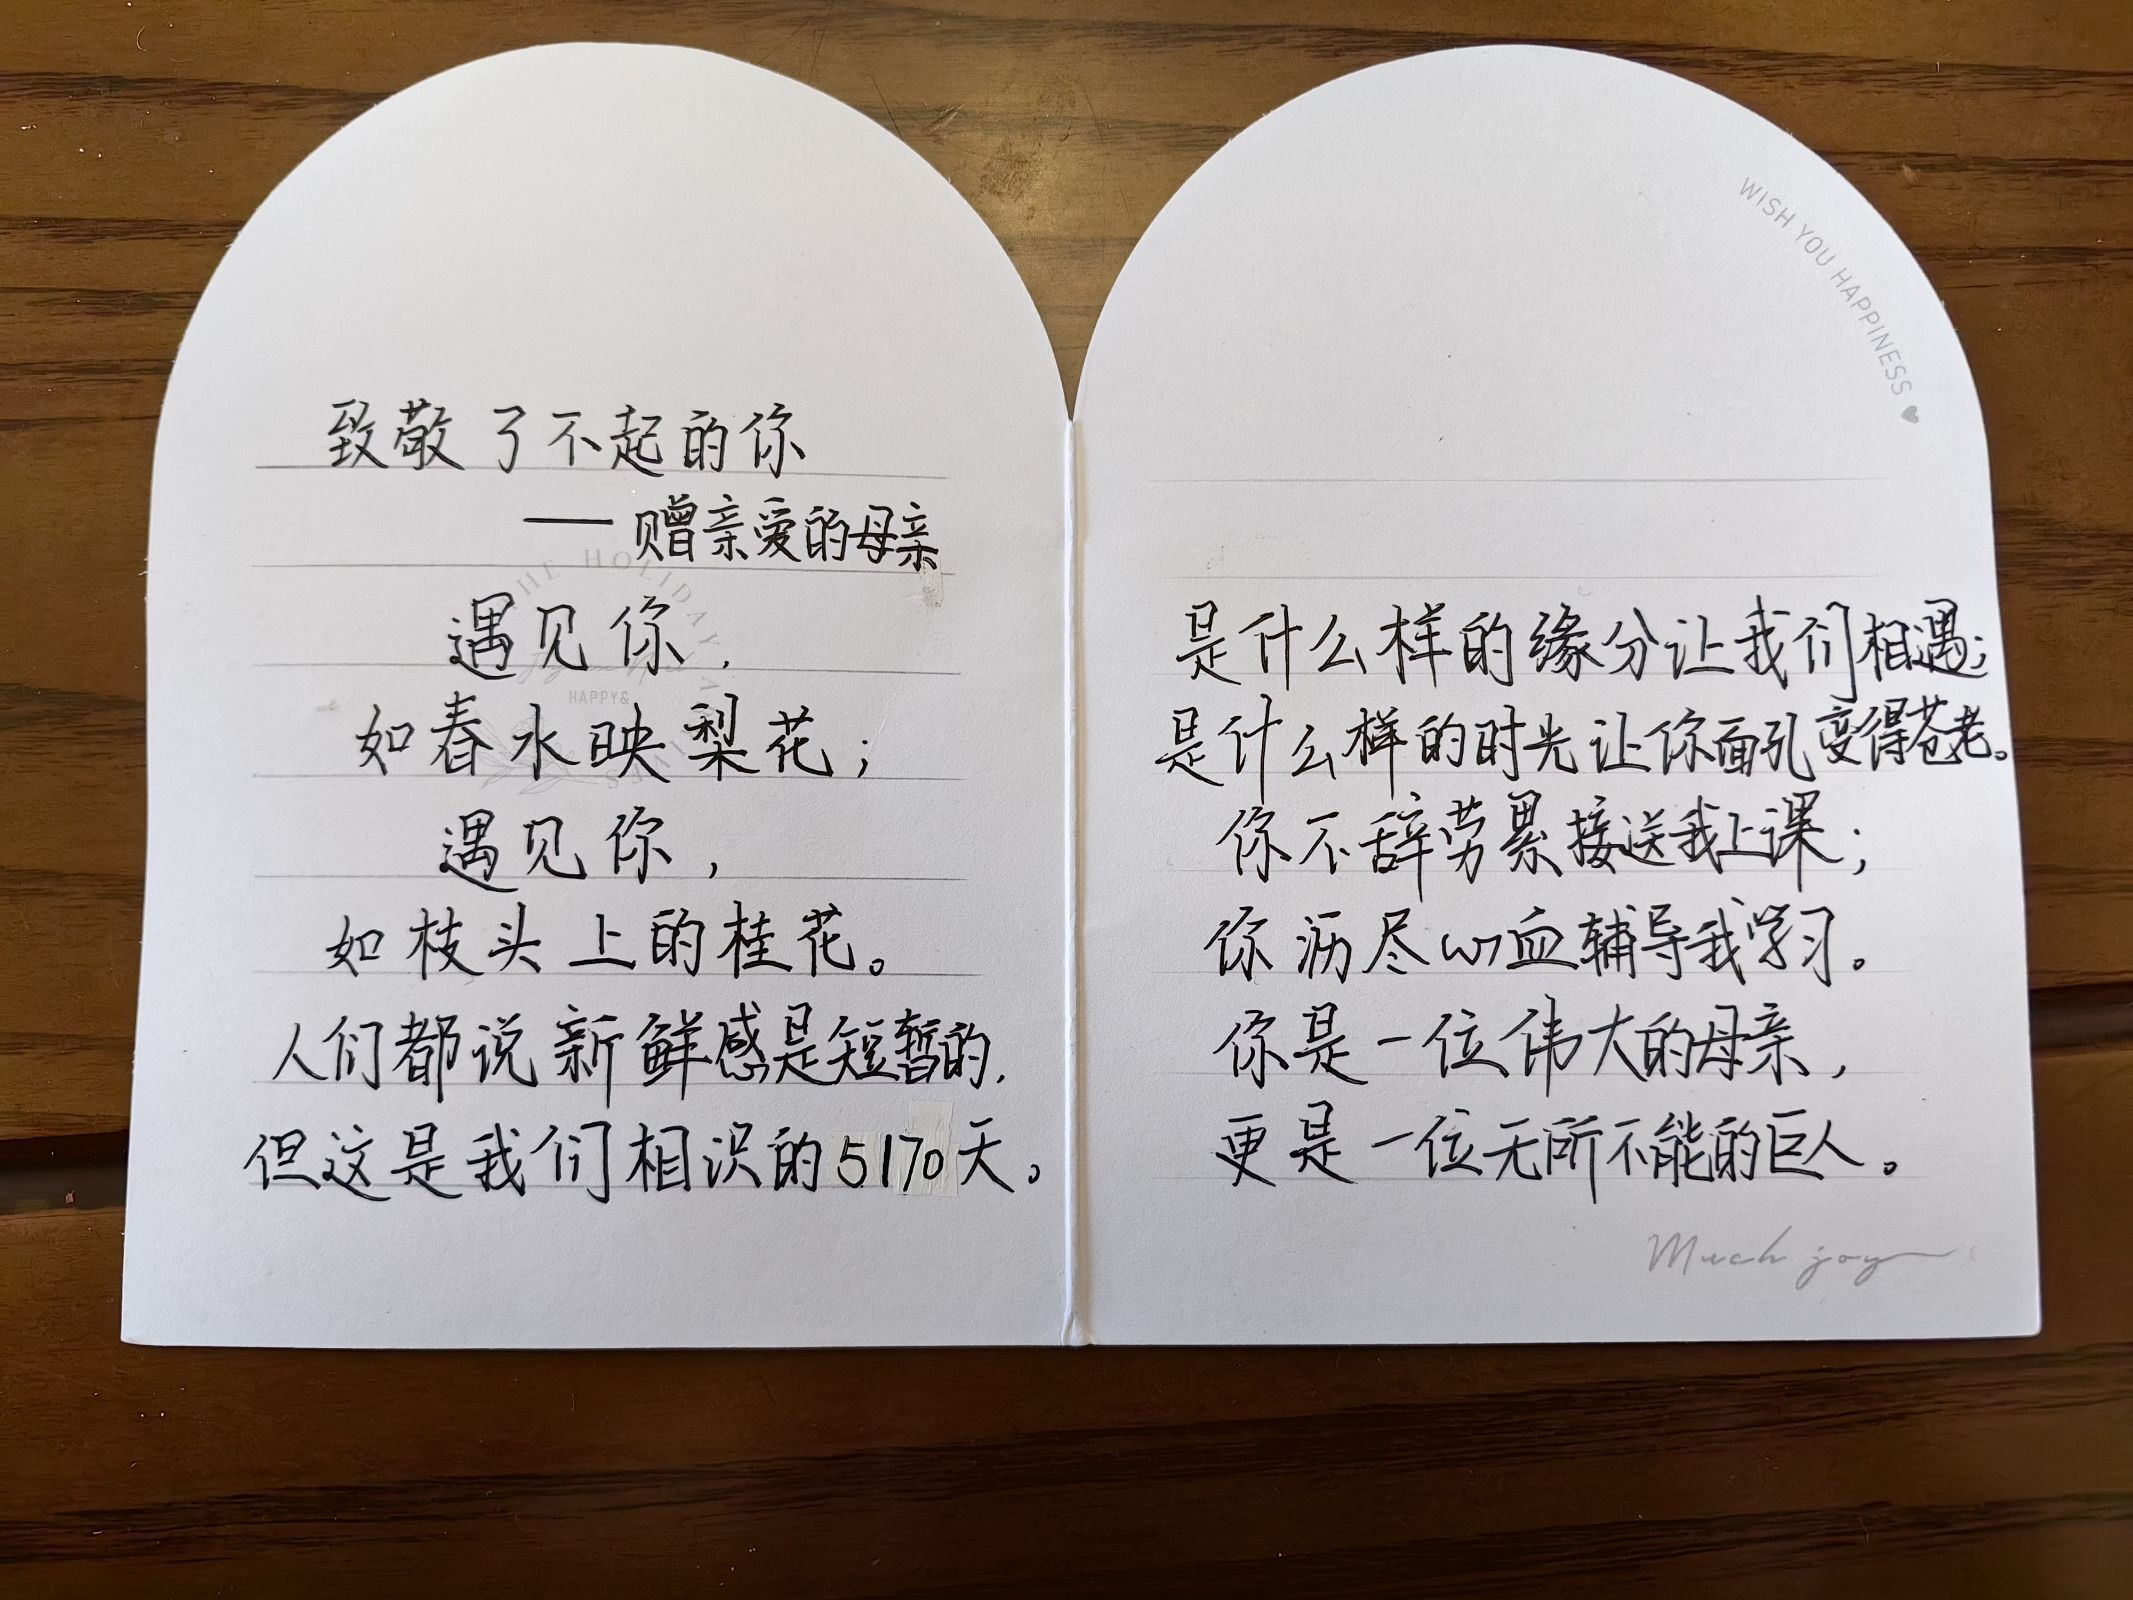 致敬了不起的你
——赠亲爱的母亲
THE HOLIDAY
遇见你,
HAPPY&
如春水映梨花;
遇见你,
如枝头上的桂花。
人们都说新鲜感是短暂的,
但这是我们相识的5170天。
WISH YOU HAPPINESS
是什么样的缘分让我们相遇;
是什么样的时光让你面孔变得苍老。
你不辞劳累接送我上课;
你沥尽心血辅导我学习。
你是一位伟大的母亲,
更是一位无所不能的巨人。
Much joy